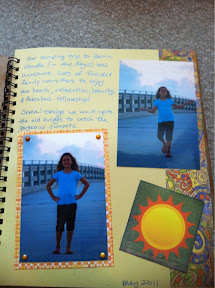 Our camping trip to Bahia
Honda (in the Keys) was
awesome. Lots of friends &
family went there to enjoy
the beach, relaxation, beauty,
& fabulous fellowship!
Several evenings we went up on
the old bridge to catch the
gorgeous sunsets.
May 2011